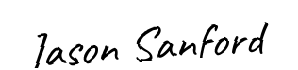 Jason Sanford